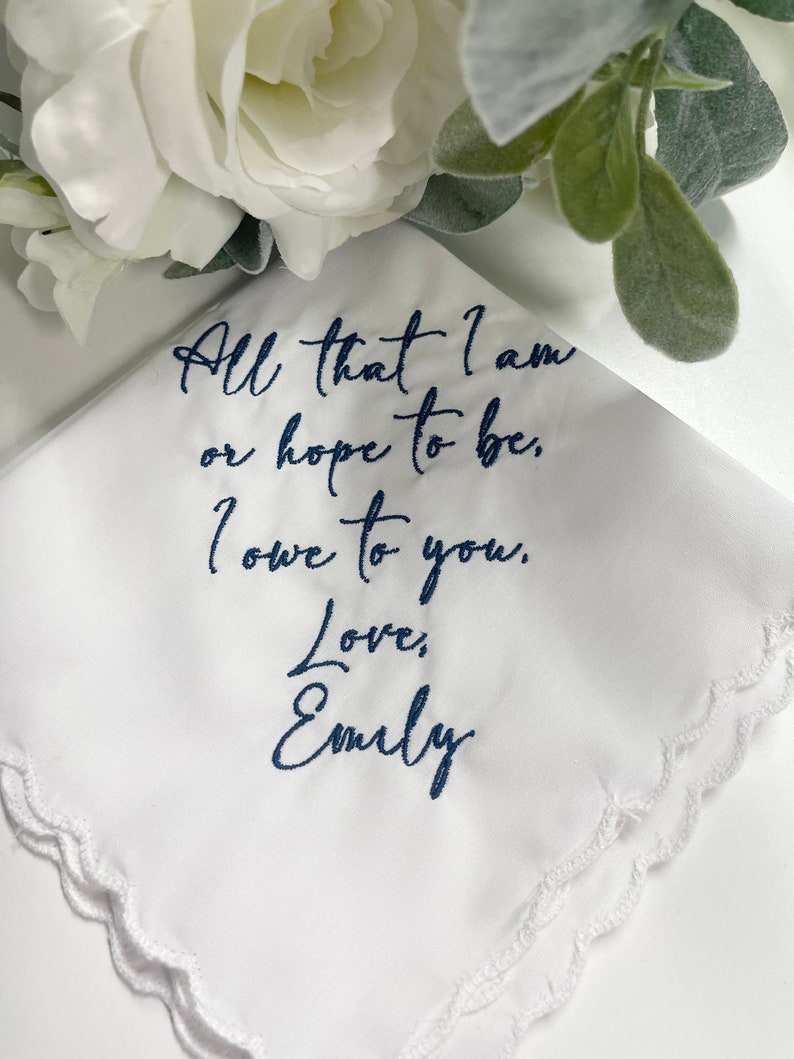 All that I am
or hope to be,
I owe to you.
Love,
Emily